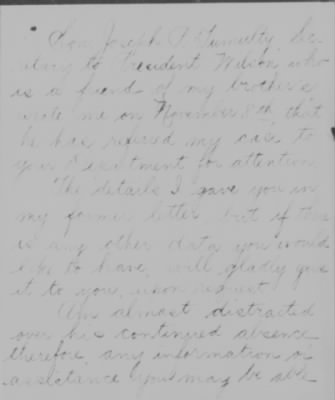 Hon. Joseph P. Tumulty Sec-
retary to President Wilson, who
is a friend of my brother's
wrote me on November 8th that
he has refered my case to
your Department for attention.
The details I gave you in
my former letter, but if there
is any other data you would
like to have, will gladly give
it to you, upon request.
Am almost distracted
over his continued absence
therefore, any information or
assistance you may be able